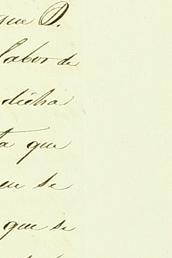 que D.
labor de
dicha
ta que
que se
que se